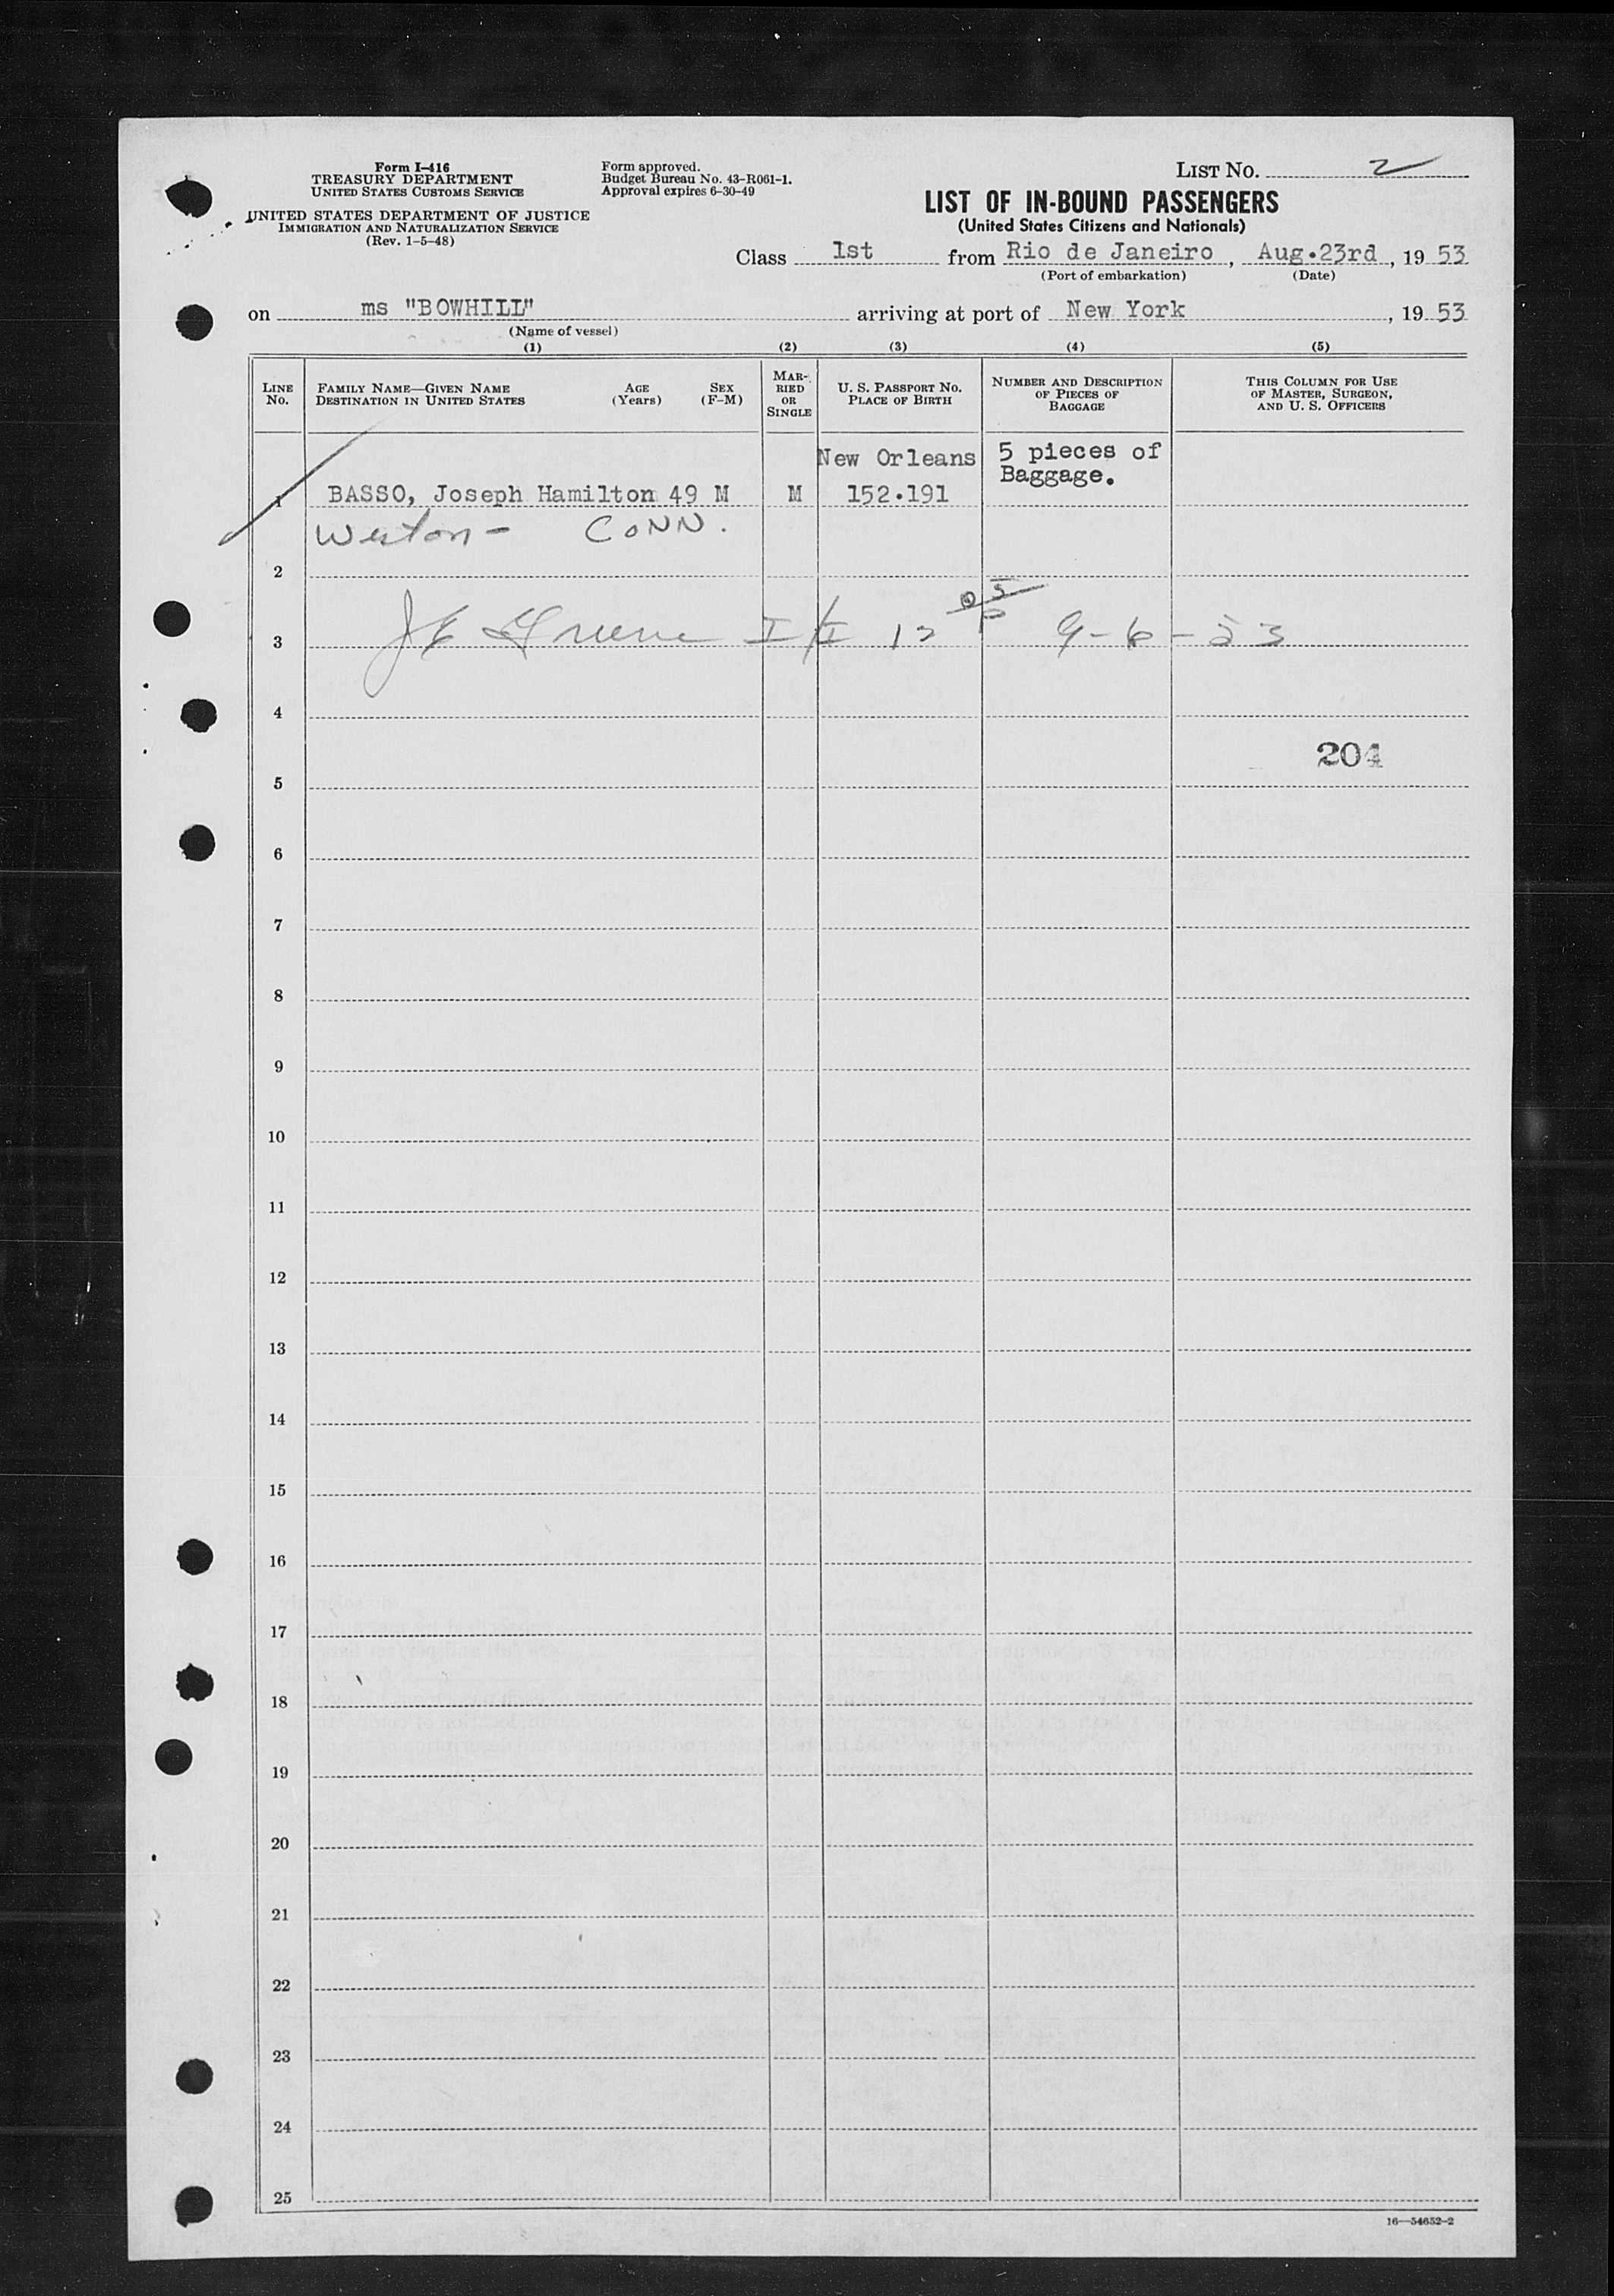 Form I-416
TREASURY DEPARTMENT
UNITED STATES CUSTOMS SERVICE
UNITED STATES DEPARTMENT OF JUSTICE
IMMIGRATION AND NATURALIZATION SERVICE
(Rev. 1-5-48)
Form approved.
Budget Bureau No. 43-R061-1.
Approval expires 6-30-49
LIST NO. 2
LIST OF IN-BOUND PASSENGERS
(United States Citizens and Nationals)
Class 1st from Rio de Janeiro, Aug.23rd, 19 53
(Port of embarkation) (Date)
on ms "BOWHILL" arriving at port of New York, 19 53
(Name of vessel)
(1) (2) (3) (4) (5)
LINE NO.
FAMILY NAME—GIVEN NAME AGE SEX
DESTINATION IN UNITED STATES (Years) (F-M)
MAR-
RIED
OR
SINGLE
U. S. PASSPORT NO.
PLACE OF BIRTH
NUMBER AND DESCRIPTION
OF PIECES OF
BAGGAGE
THIS COLUMN FOR USE
OF MASTER, SURGEON,
AND U. S. OFFICERS
New Orleans 5 pieces of
Baggage.
1 BASSO, Joseph Hamilton 49 M M 152.191
Weston - CONN.
2
3 J E Greene 9-6-53
4
204
5
6
7
8
9
10
11
12
13
14
15
16
17
18
19
20
21
22
23
24
25
16—54652-2